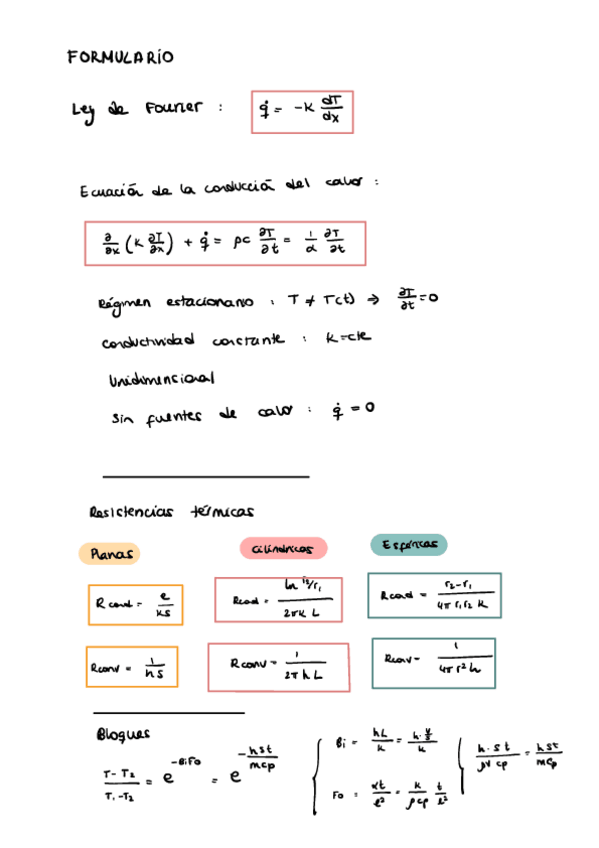 FORMULARIO
Ley de Fourier : q̇ = -K dT/dx
Ecuación de la conducción del calor :
∂/∂x (K ∂T/∂x) + q̇ = ρc ∂T/∂t = 1/α ∂T/∂t
Régimen estacionario : T ≠ T(t) → ∂T/∂t = 0
conductividad constante : K=cte
Unidimencional
Sin fuentes de calor : q̇ = 0
Resistencias térmicas
Planas Cilíndricas Esféricas
R cond = e/KS Rcond = ln r2/r1 / 2πK L Rcond = r2-r1 / 4π r1 r2 K
Rconv = 1/hS Rconv = 1/2π h L Rconv = 1/4π r² h
Bloques
T-T2 / T1-T2 = e^-BiFo = e^-hSt/mcp { Bi = hL/K = h·V/S / K { h·S t/ρV cp = hSt/mcp
Fo = αt/l² = K/ρcp t/l²